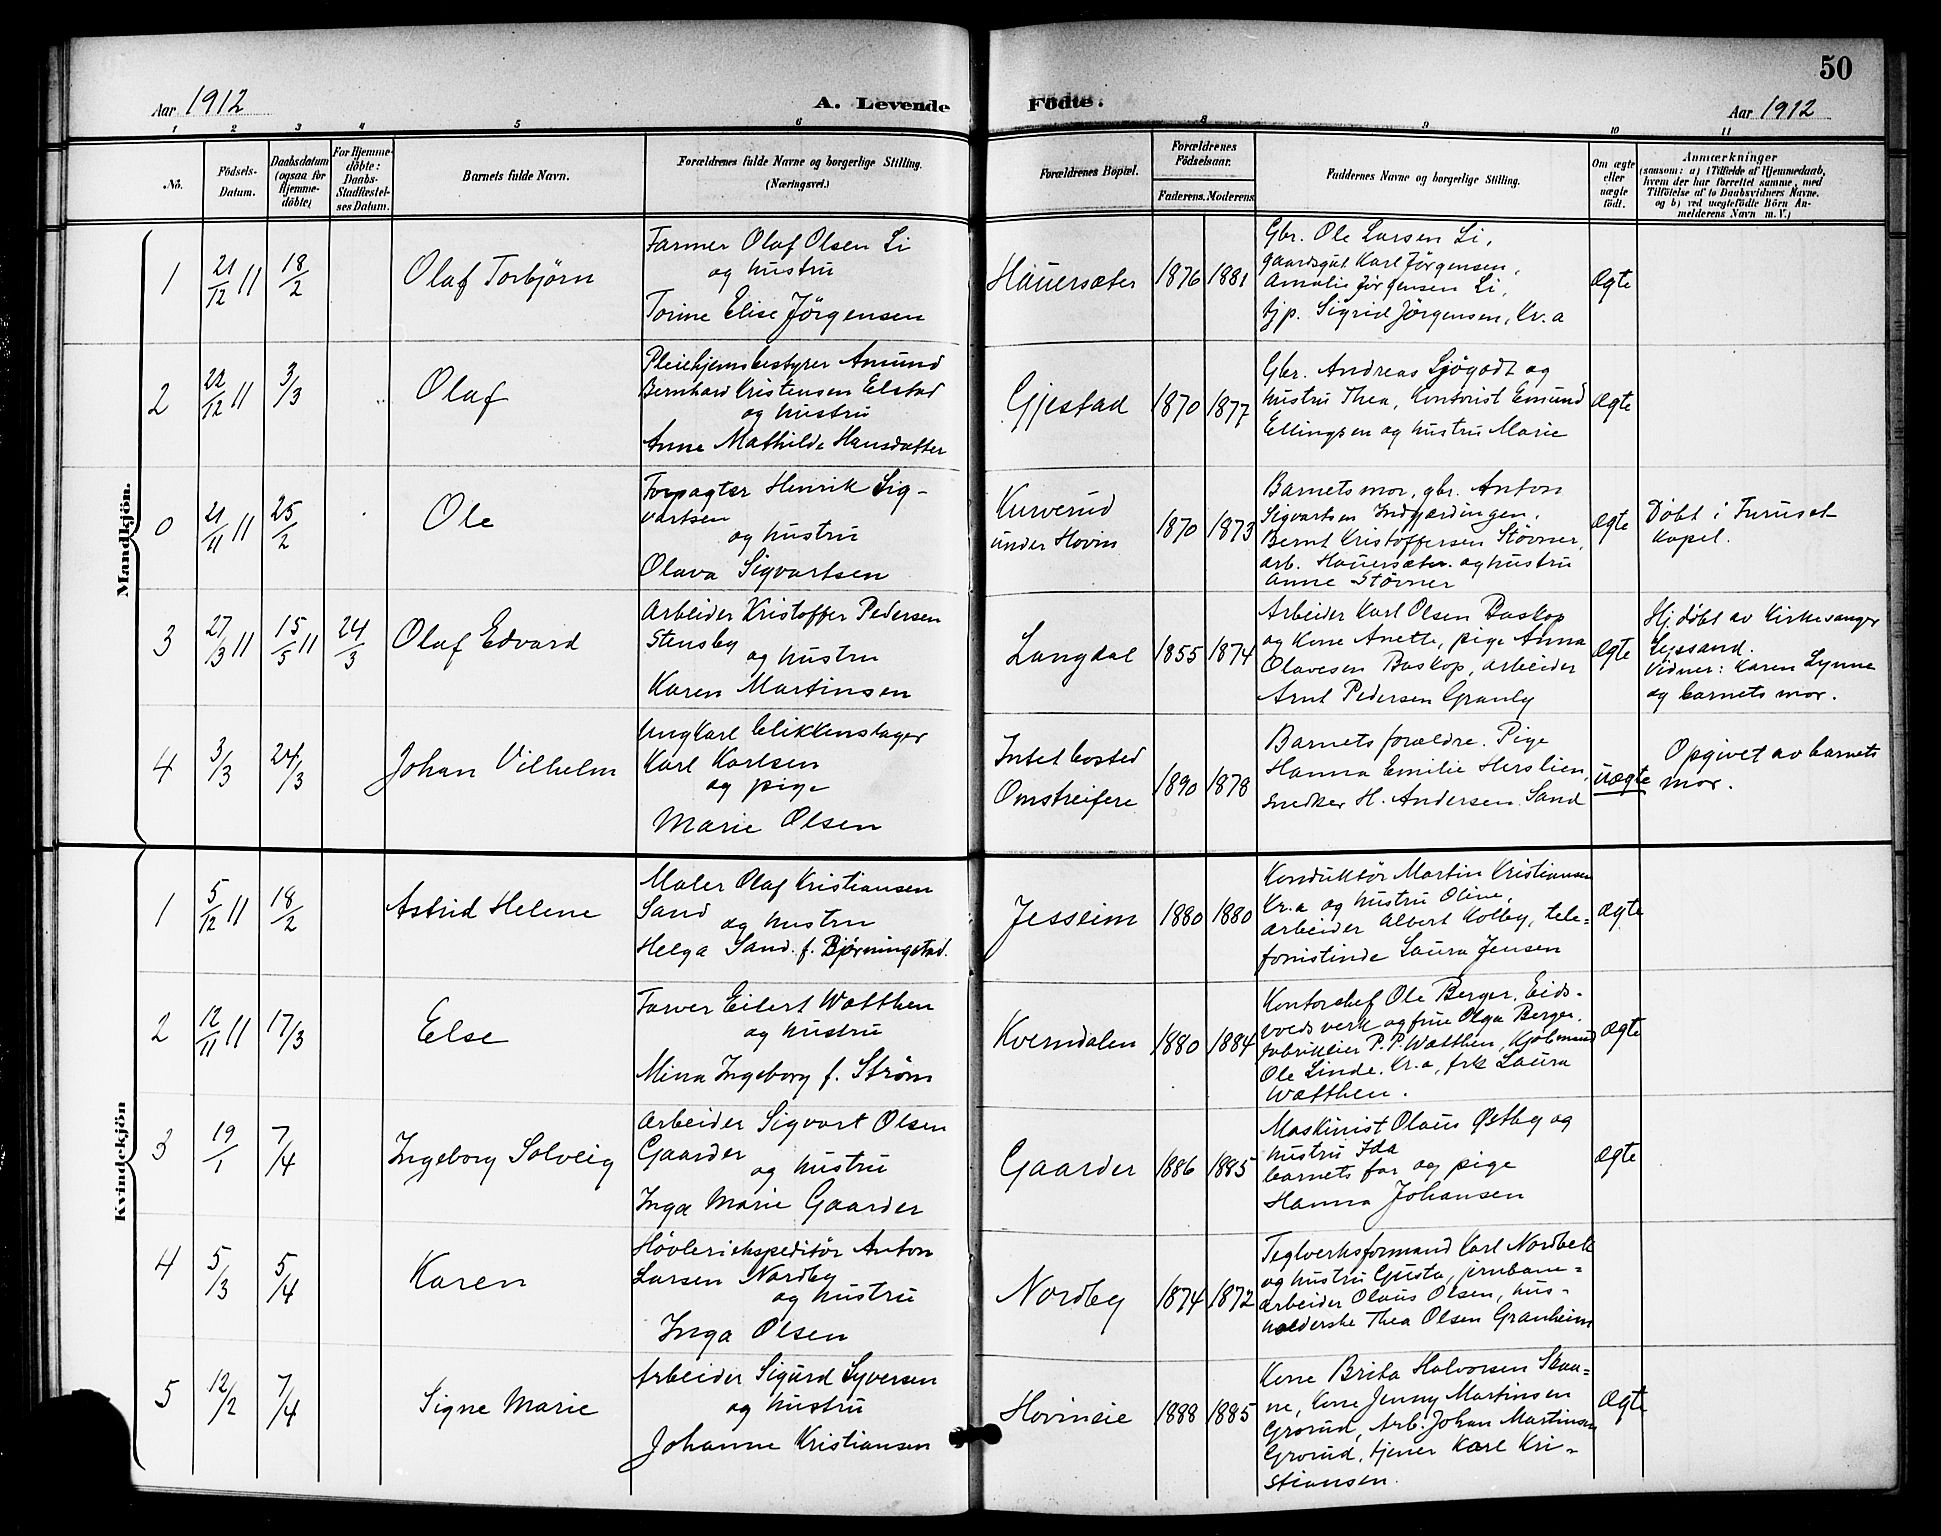 50
Aar 1912
A. Levende Födte.
Aar 1912
1 2 3 4 5 6 8 9 10 11
No.
Födsels-Datum.
Daabsdatum (ogsaa for Hjemme-döbte)
For Hjemme-döbte: Daabs-Stadfæstel-ses Datum.
Barnets fulde Navn.
Forældrenes fulde Navne og borgerlige Stilling.
(Næringsvei.)
Forældrenes Bopæl.
Forældrenes Födselsaar.
Faderens. Moderens
Faddernes Navne og borgerlige Stilling.
Om ægte eller uægte födt.
Anmærkninger
(saasom: a) i Tilfælde af Hjemmedaab,
hvem der har forrettet samme, med
Tilföielse af to Daabsvidners Navne.
og b) ved uægtefödte Börn An-
melderens Navn m. V.)
Mandkjön.
1
21/12 11
18/2
Olaf Torbjörn
Farmer Olaf Olsen Li
og hustru
Torine Elise Jörgensen
Hauersæter
1876
1881
Gbr. Ole Larsen Li,
gaardsgut Karl Jørgensen,
Amalie Jørgensen Li,
tjp. Sigrid Jørgensen, Kr.a
Ægte
2
22/12 11
3/3
Olaf
Pleiehjemsbestyrer Amund
Bernhard Kristensen Elstad
og hustru
Anne Mathilde Hansdatter
Gjestad
1870
1877
Gbr. Andreas Sjøgodt og
hustru Thea, Kontorist Emund
Ellingsen og hustru Marie
Ægte
0
21/11 11
25/2
Ole
Forpagter Henrik Sig-
vartsen
og hustru
Olava Sigvartsen
Kurverud
under Hovin
1870
1873
Barnets mor, gbr. Anton
Sigvartsen Indgjærdingen,
Bernt Kristoffersen Støvner,
arb. Hauersæter og hustru
Anne Støvner
Ægte
Döbt i Furuset
Kapel.
3
27/3 11
15/5 11
24/3
Olaf Edvard
Arbeider Kristoffer Pedersen
Stensby
og hustru
Karen Martinsen
Langdal
1855
1874
Arbeider Karl Olsen Baskop
og Kone Anette, pige Anna
Olavesen Baskop, arbeider
Arnt Pedersen Granly
Ægte
Hj.döbt av Kirkesanger
Lyssand.
Vidner: Karen Lynne
og barnets mor.
4
3/3
24/3
Johan Vilhelm
Ungkarl blikkenslager
Karl Karlsen
og pige
Marie Olsen
Intet bosted
Omstreifere
1890
1878
Barnets forældre. Pige
Hanna Emilie Herslien,
snedker H. Andersen Sand
Uægte
Opgivet av barnets
mor.
Kvindekjön
1
5/12 11
18/2
Astrid Helene
Maler Olaf Kristiansen
Sand
og hustru
Helga Sand f. Bjørningstad.
Jessheim
1880
1880
Konduktör Martin Kristiansen
Kr.a og hustru Oline,
arbeider Albert Kolby, tele-
fonistinde Laura Jensen
Ægte
2
12/11 11
17/3
Else
Farver Eilert Wætthen
og hustru
Mina Ingeborg f. Strøm
Kverndalen
1880
1884
Kontorchef Ole Berger, Eids-
voldsverk og frue Olga Berger,
fabrikeier P.P. Wætthen, Kjøbmand
Ole Linde. Kr.a, frk Laura
Wætthen.
Ægte
3
19/1
7/4
Ingeborg Solveig
Arbeider Sigvart Olsen
Gaarder
og hustru
Inga Marie Gaarder
Gaarder
1886
1885
Maskinist Olaus Østby og
hustru Ida
barnets far og pige
Hanna Johansen
Ægte
4
5/3
5/4
Karen
Høvleriekspeditør Anton
Larsen Nordby
og hustru
Inga Olsen
Nordby
1874
1872
Teglverksformand Karl Nordbek
og hustru Gusta, jernbane-
arbeider Olaus Olsen, hus-
holderske Thea Olsen Granheim
5
12/2
7/4
Signe Marie
Arbeider Sigurd Syversen
og hustru
Johanne Kristiansen
Hovineie
1888
1885
Kone Brita Halvorsen Skaa-
ne, Kone Jenny Martinsen
Grorud, Arb. Johan Martinsen
Grorud, tjener Karl Kri-
stiansen.
Ægte